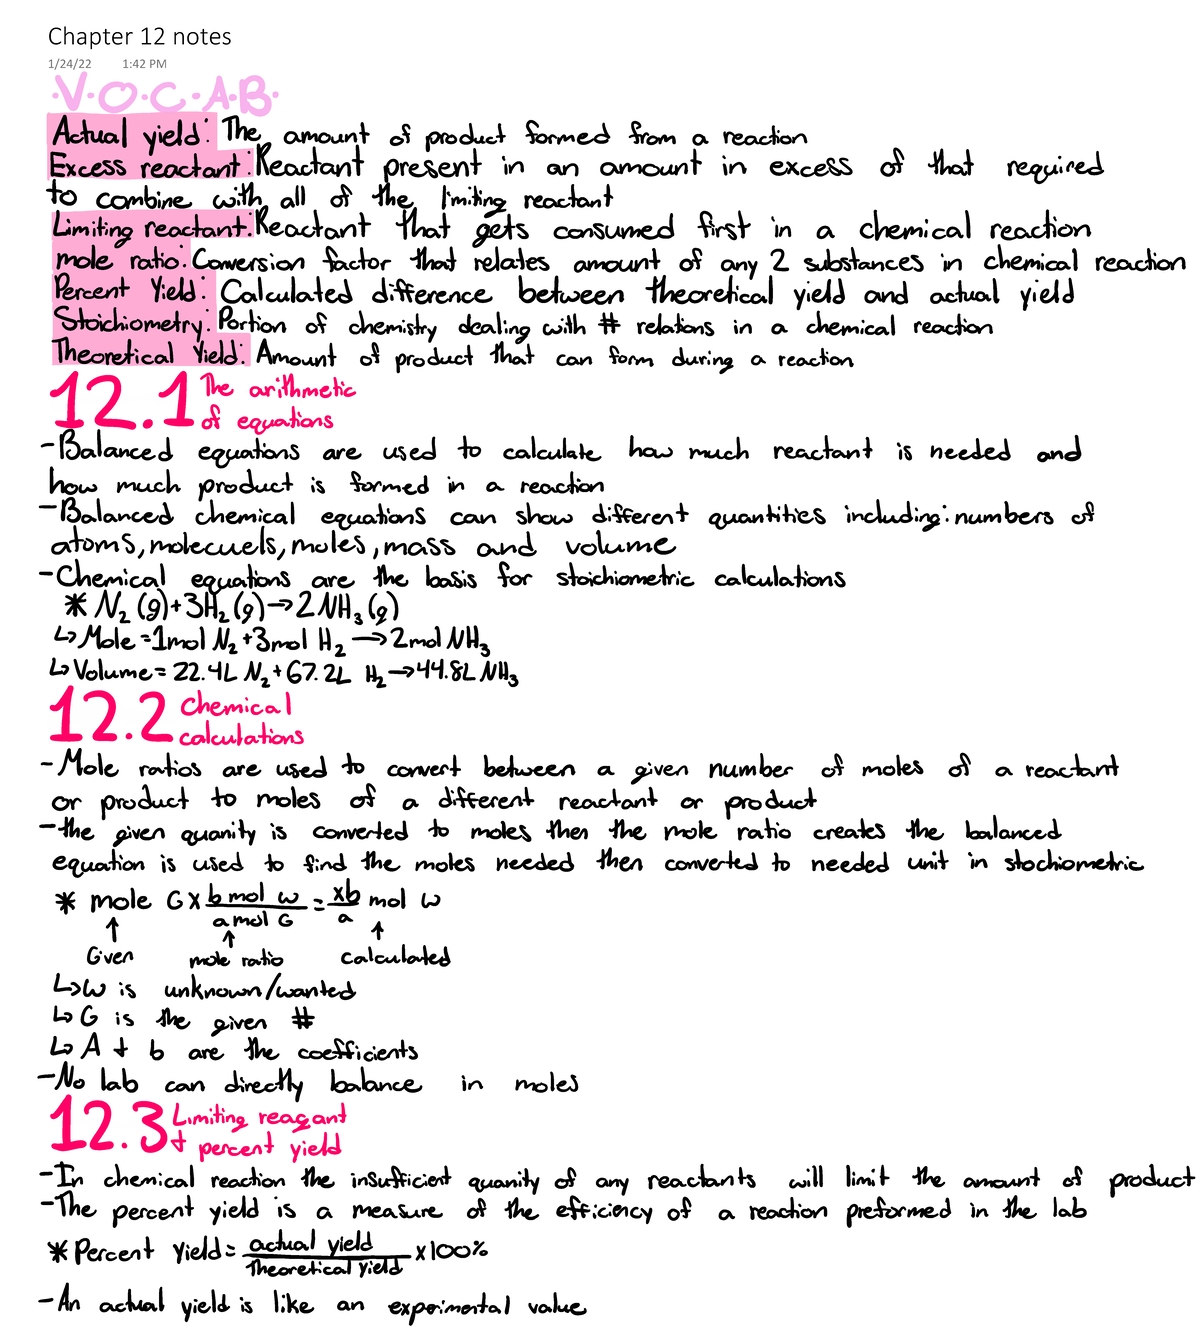 Chapter 12 notes
1/24/22 1:42 PM
·V·O·C·A·B·
Actual yield: The amount of product formed from a reaction
Excess reactant: Reactant present in an amount in excess of that required
to combine with all of the limiting reactant
Limiting reactant: Reactant that gets consumed first in a chemical reaction
mole ratio: Conversion factor that relates amount of any 2 substances in chemical reaction
Percent Yield: Calculated difference between theoretical yield and actual yield
Stoichiometry: Portion of chemistry dealing with # relations in a chemical reaction
Theoretical Yield: Amount of product that can form during a reaction
12.1 The arithmetic
of equations
-Balanced equations are used to calculate how much reactant is needed and
how much product is formed in a reaction
-Balanced chemical equations can show different quantities including: numbers of
atoms, molecuels, moles, mass and volume
-Chemical equations are the basis for stoichiometric calculations
* N₂ (g)+3H₂ (g)→2NH₃ (g)
↳ Mole=1mol N₂+3mol H₂→2mol NH₃
↳ Volume= 22.4L N₂+67.2L H₂→44.8L NH₃
12.2 Chemical
calculations
-Mole ratios are used to convert between a given number of moles of a reactant
or product to moles of a different reactant or product
-the given quanity is converted to moles then the mole ratio creates the balanced
equation is used to find the moles needed then converted to needed unit in stochiometric
* mole G x b mol w / a mol G = xb / a mol w
↑ ↑ ↑
Given mole ratio calculated
↳ w is unknown/wanted
↳ G is the given #
↳ A + b are the coefficients
-No lab can directly balance in moles
12.3 Limiting reagant
+ percent yield
-In chemical reaction the insufficient quanity of any reactants will limit the amount of product
-The percent yield is a measure of the efficiency of a reaction preformed in the lab
* Percent Yield= actual yield / Theoretical Yield x100%
-An actual yield is like an experimental value